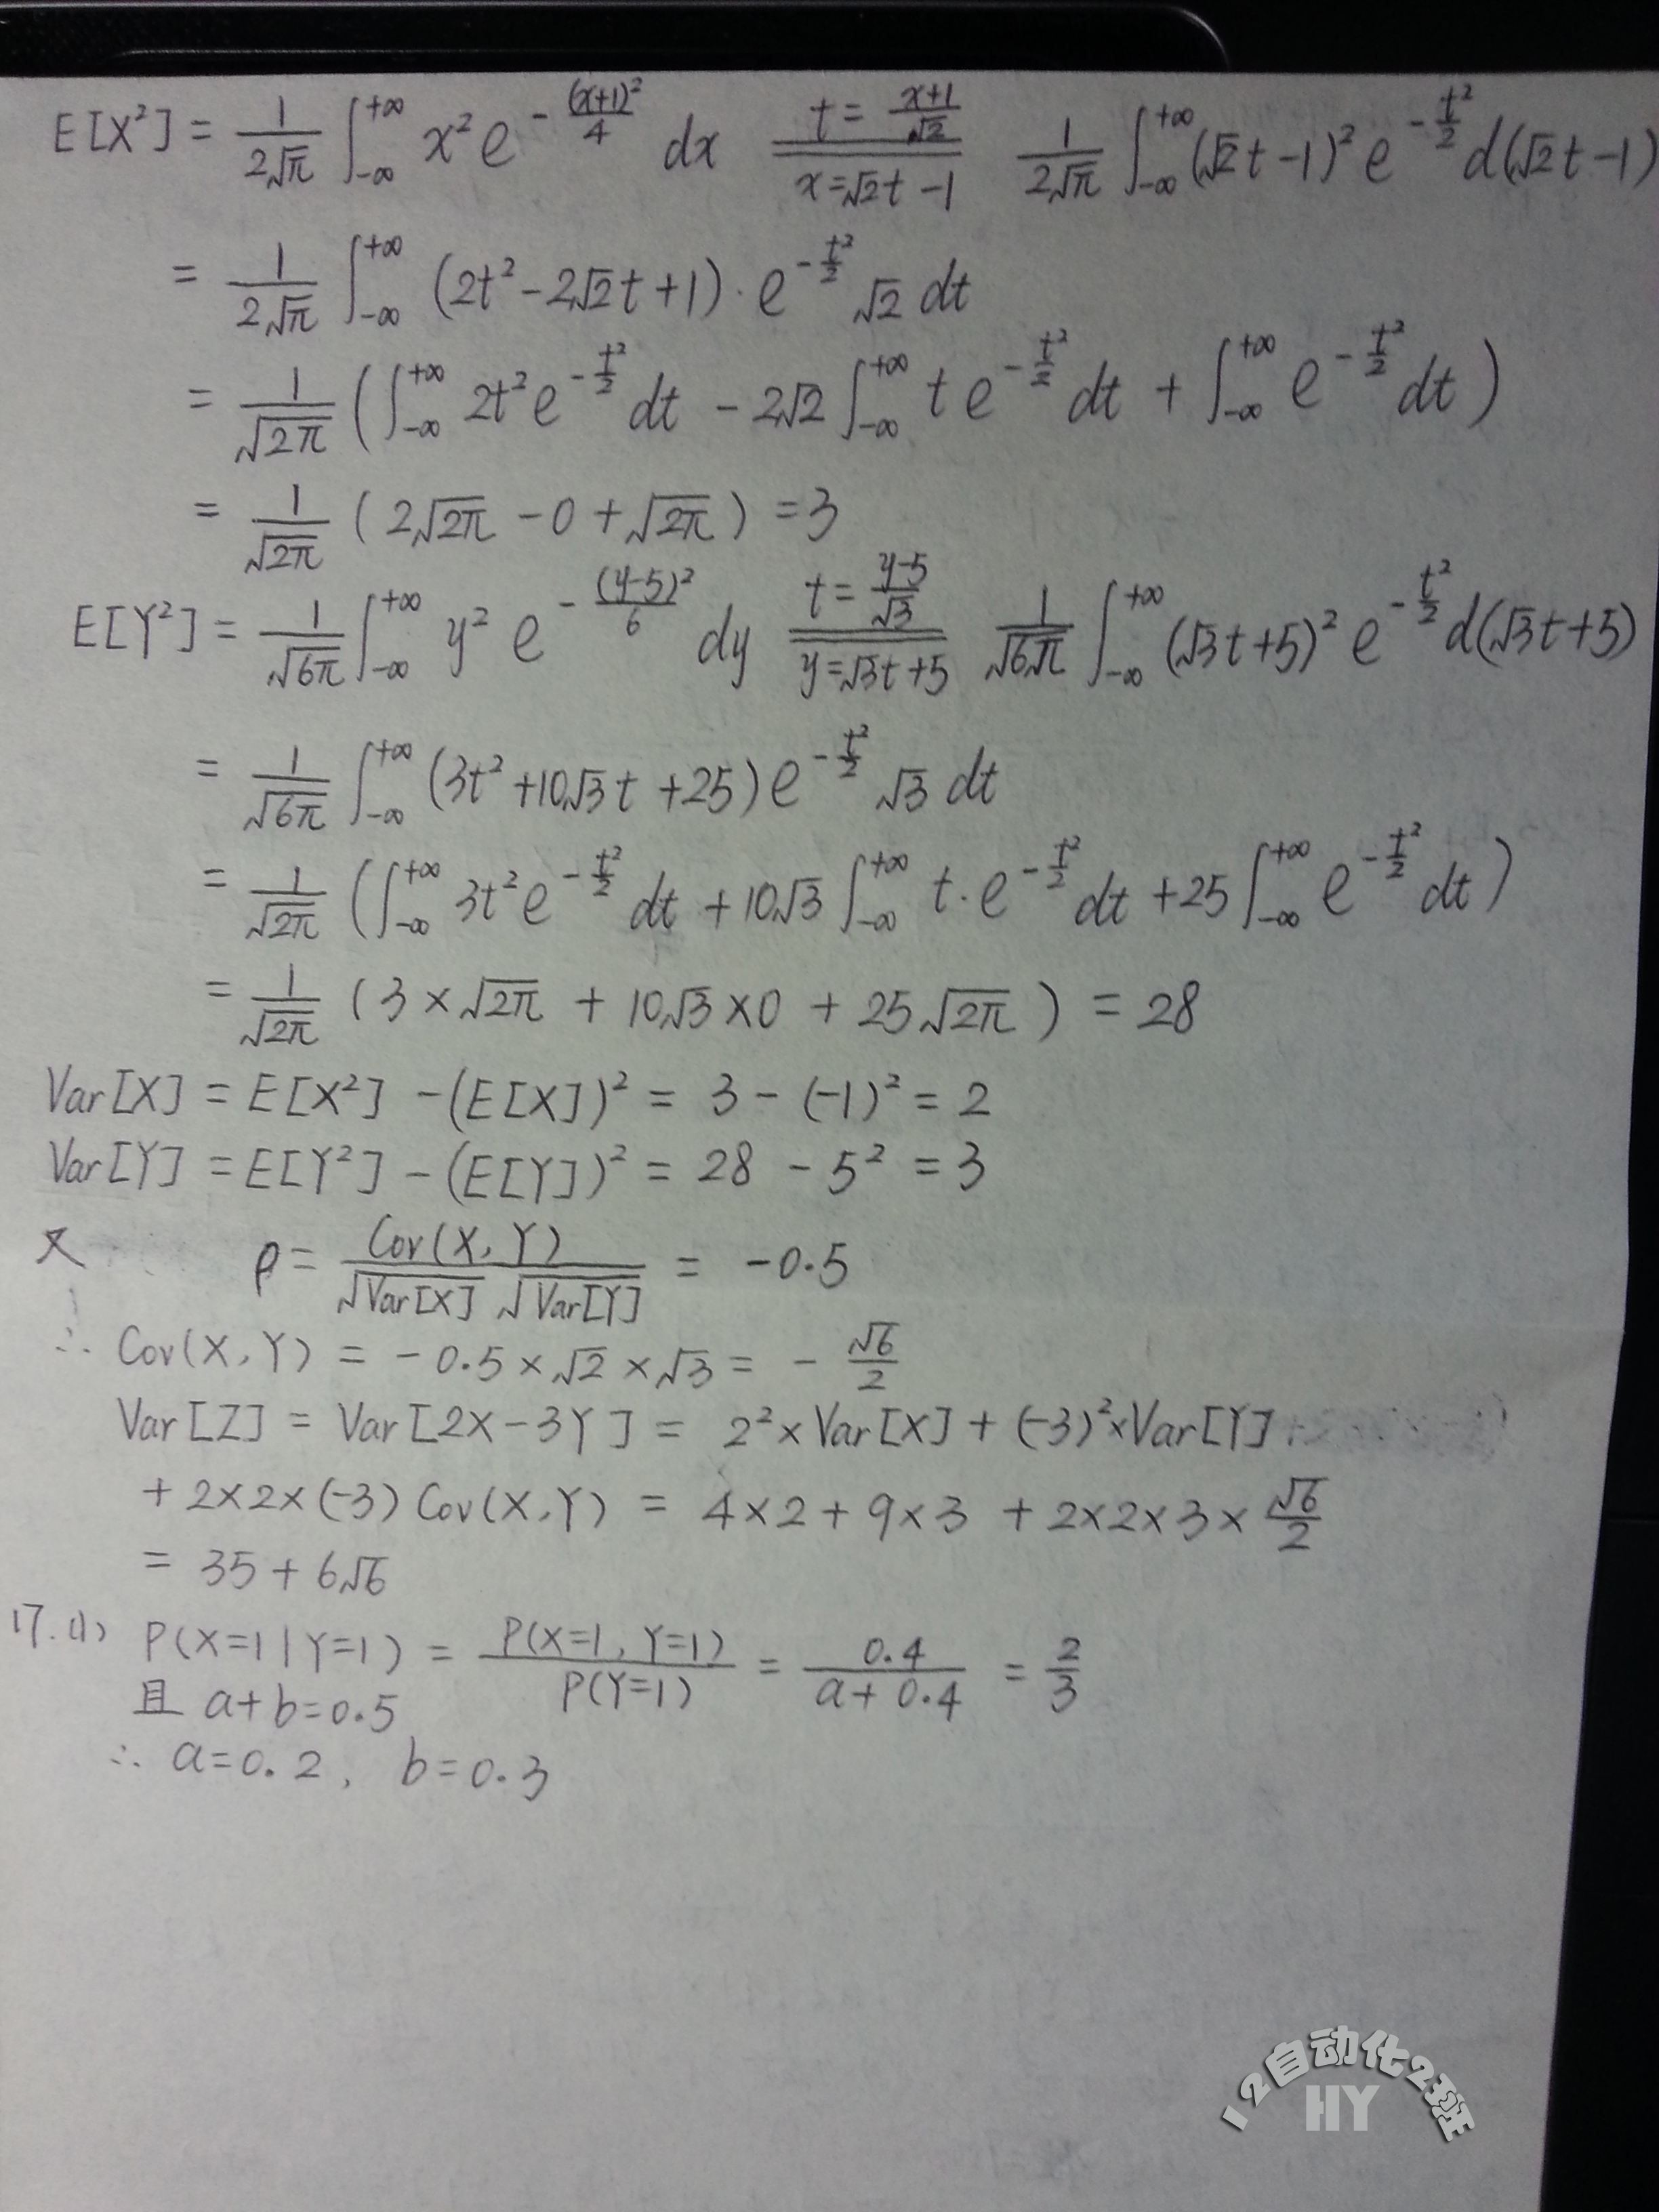 E[X²] = \frac{1}{2\sqrt{π}} ∫_{-∞}^{+∞} x² e^{-\frac{(x+1)²}{4}} dx \xlongequal[x=\sqrt{2}t-1]{t=\frac{x+1}{\sqrt{2}}} \frac{1}{2\sqrt{π}} ∫_{-∞}^{+∞} (\sqrt{2}t-1)² e^{-\frac{t²}{2}} d(\sqrt{2}t-1)
= \frac{1}{2\sqrt{π}} ∫_{-∞}^{+∞} (2t²-2\sqrt{2}t+1)·e^{-\frac{t²}{2}} \sqrt{2} dt
= \frac{1}{\sqrt{2π}} (∫_{-∞}^{+∞} 2t² e^{-\frac{t²}{2}} dt - 2\sqrt{2} ∫_{-∞}^{+∞} t e^{-\frac{t²}{2}} dt + ∫_{-∞}^{+∞} e^{-\frac{t²}{2}} dt)
= \frac{1}{\sqrt{2π}} (2\sqrt{2π} - 0 + \sqrt{2π}) = 3
E[Y²] = \frac{1}{\sqrt{6π}} ∫_{-∞}^{+∞} y² e^{-\frac{(y-5)²}{6}} dy \xlongequal[y=\sqrt{3}t+5]{t=\frac{y-5}{\sqrt{3}}} \frac{1}{\sqrt{6}\sqrt{π}} ∫_{-∞}^{+∞} (\sqrt{3}t+5)² e^{-\frac{t²}{2}} d(\sqrt{3}t+5)
= \frac{1}{\sqrt{6π}} ∫_{-∞}^{+∞} (3t²+10\sqrt{3}t+25) e^{-\frac{t²}{2}} \sqrt{3} dt
= \frac{1}{\sqrt{2π}} (∫_{-∞}^{+∞} 3t² e^{-\frac{t²}{2}} dt + 10\sqrt{3} ∫_{-∞}^{+∞} t·e^{-\frac{t²}{2}} dt + 25 ∫_{-∞}^{+∞} e^{-\frac{t²}{2}} dt)
= \frac{1}{\sqrt{2π}} (3×\sqrt{2π} + 10\sqrt{3}×0 + 25\sqrt{2π}) = 28
Var[X] = E[X²] - (E[X])² = 3 - (-1)² = 2
Var[Y] = E[Y²] - (E[Y])² = 28 - 5² = 3
又 ρ = \frac{Cov(X, Y)}{\sqrt{Var[X]} \sqrt{Var[Y]}} = -0.5
∴ Cov(X, Y) = -0.5×\sqrt{2}×\sqrt{3} = -\frac{\sqrt{6}}{2}
Var[Z] = Var[2X-3Y] = 2²×Var[X] + (-3)²×Var[Y]
+ 2×2×(-3) Cov(X, Y) = 4×2 + 9×3 + 2×2×3×\frac{\sqrt{6}}{2}
= 35 + 6\sqrt{6}
17. (1) P(X=1 | Y=1) = \frac{P(X=1, Y=1)}{P(Y=1)} = \frac{0.4}{a+0.4} = \frac{2}{3}
且 a+b=0.5
∴ a=0.2, b=0.3
12自动化2班
HY